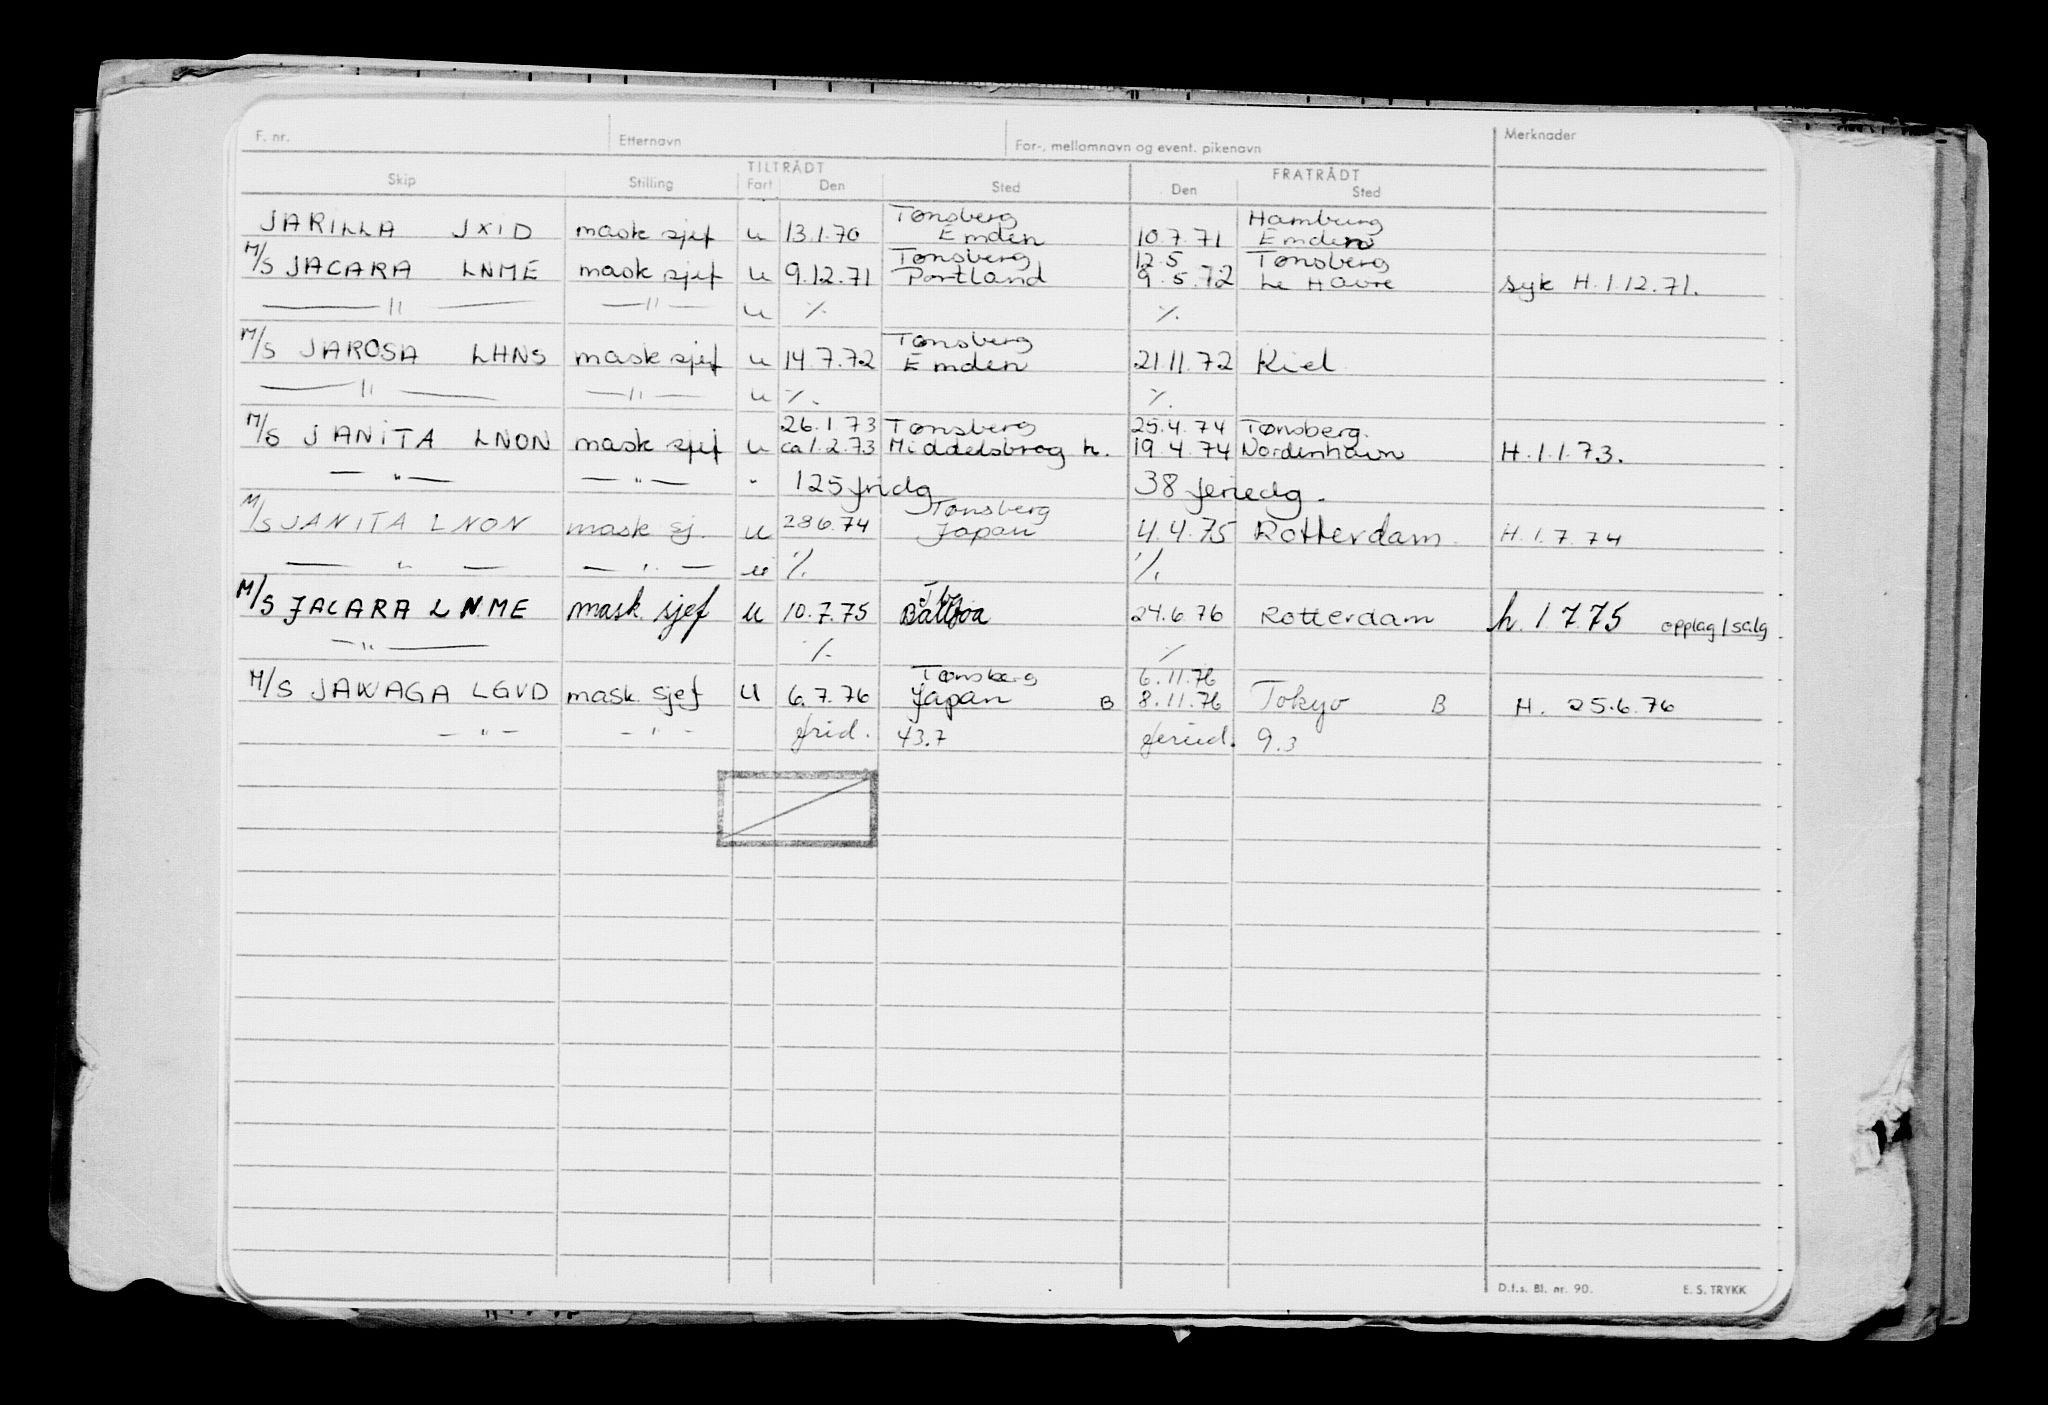 F. nr. Etternavn For-, mellomnavn og event. pikenavn Merknader
TILTRÅDT FRATRÅDT
Skip Stilling Fart Den Sted Den Sted
Tønsberg Hamburg
JARILLA JXID mask sjef u 13.1.70 Emden 10.7.71 Emden
Tønsberg 12.5 Tønsberg
M/S JACARA LNME mask sjef u 9.12.71 Portland 9.5.72 Le Havre syk H.1.12.71.
—— " —— — " — u ⁒ ⁒
Tønsberg
M/S JAROSA LHNS mask sjef u 14.7.72 Emden 21.11.72 Kiel
—— " —— — " — u ⁒. ⁒.
26.1 73 Tønsberg 25.4.74 Tønsberg.
M/S JANITA LNON mask sjef u ca 1.2.73 Middelsbrog h. 19.4.74 Nordenhavn H.1.1.73.
— " — — " — " 125 fridg 38 feriedg.
Tønsberg
M/S JANITA LNON mask sj. u 286.74 Japan 4.4.75 Rotterdam H.1.7.74
— " — — " — u ⁒. ⁒.
Tbg
M/S JACARA LNME mask sjef u 10.7.75 Balboa 24.6.76 Rotterdam h. 1 7.75 opplag/salg
— " — ⁒. ⁒
Tønsberg 6.11.76
M/S JAWAGA LGVD mask sjef U 6.7.76 Japan B 8.11.76 Tokyo B H. 25.6.76
— " — — " — frid. 43.7 feried. 9.3
D.f.s. Bl. nr. 90. E. S. TRYKK